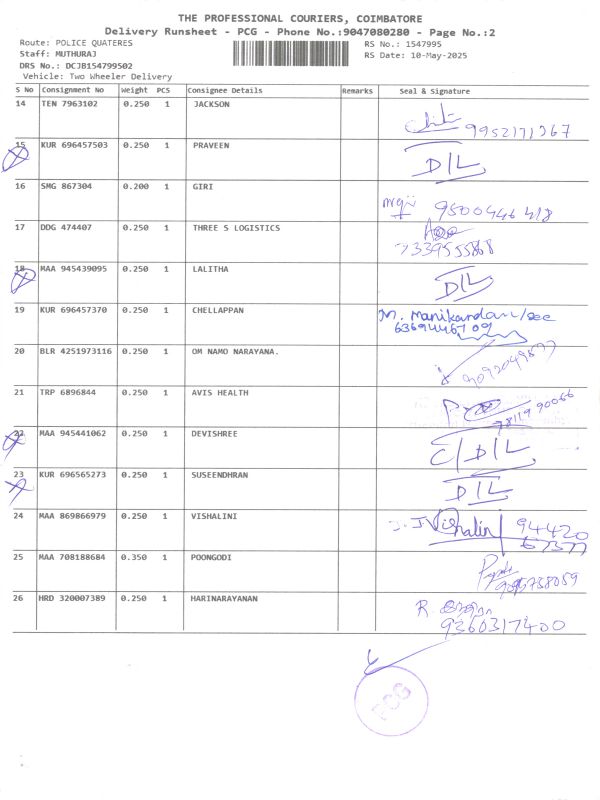 THE PROFESSIONAL COURIERS, COIMBATORE
Delivery Runsheet - PCG - Phone No.:9047080280 - Page No.:2
Route: POLICE QUATERES RS No.: 1547995
Staff: MUTHURAJ RS Date: 10-May-2025
DRS No.: DCJB154799502
Vehicle: Two Wheeler Delivery
S No Consignment No Weight PCS Consignee Details Remarks Seal & Signature
14 TEN 7963102 0.250 1 JACKSON
9952171267
15 KUR 696457503 0.250 1 PRAVEEN D/L
16 SMG 867304 0.200 1 GIRI
9500446418
17 DDG 474407 0.250 1 THREE S LOGISTICS
7339555868
18 MAA 945439095 0.250 1 LALITHA D/L
19 KUR 696457370 0.250 1 CHELLAPPAN M. Manikandan/sec
6369446709
20 BLR 4251973116 0.250 1 OM NAMO NARAYANA.
21 TRP 6896844 0.250 1 AVIS HEALTH
22 MAA 945441062 0.250 1 DEVISHREE C/D/L
23 KUR 696565273 0.250 1 SUSEENDHRAN D/L
24 MAA 869866979 0.250 1 VISHALINI J. Vishalini 94420
67377
25 MAA 708188684 0.350 1 POONGODI
26 HRD 320007389 0.250 1 HARINARAYANAN R
9360317400
PCG